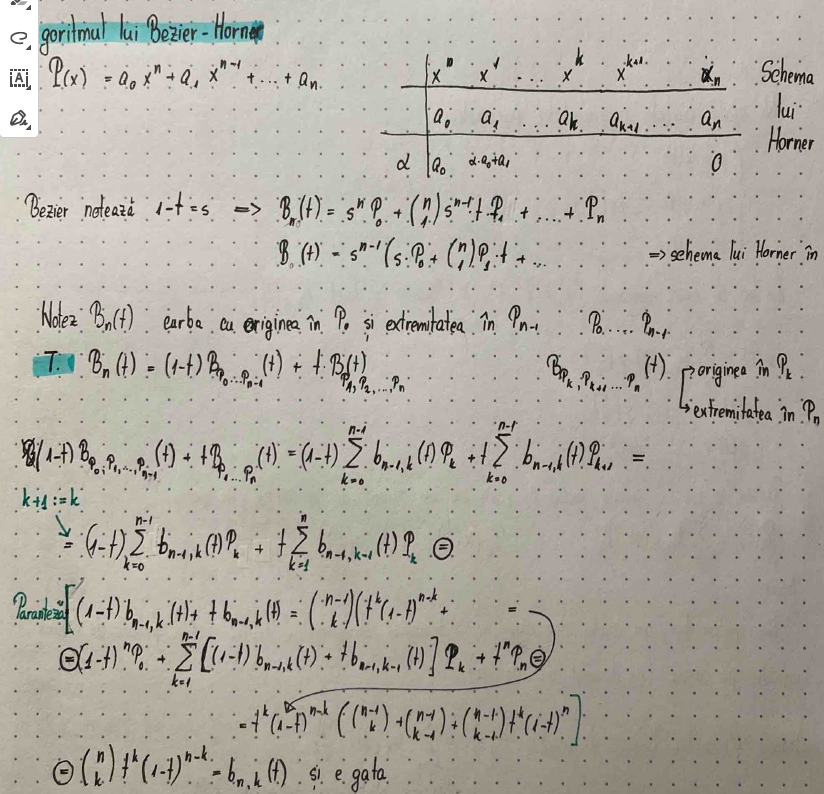 goritmul lui Bezier-Horner
P(x) = a₀ xⁿ + a₁ xⁿ⁻¹ + ... + aₙ
xⁿ x¹ ... xᵏ xᵏ⁺¹ xₙ
a₀ a₁ ... aₖ aₖ₊₁ ... aₙ
α a₀ α·a₀+a₁ 0
Schema
lui
Horner
Bezier notează 1-t=s => Bₙ(t) = sⁿ P₀ + (n 1) sⁿ⁻¹ t P₁ + ... + Pₙ
B (t) = sⁿ⁻¹ (s·P₀ + (n 1) P₁ t + ... => schema lui Horner în
Notez Bₙ(t) curba cu originea în P₀ și extremitatea în Pₙ₋₁ P₀ .... Pₙ₋₁
T. Bₙ(t) = (1-t) B_{P₀...Pₙ₋₁}(t) + t B_{P₁,P₂,...,Pₙ}(t) B_{Pₖ,Pₖ₊₁...Pₙ}(t) originea în Pₖ
extremitatea în Pₙ
(1-t) B_{P₀,P₁,...,Pₙ₋₁}(t) + t B_{P₁...Pₙ}(t) = (1-t) ∑_{k=0}^{n-1} b_{n-1,k}(t) Pₖ + t ∑_{k=0}^{n-1} b_{n-1,k}(t) Pₖ₊₁ =
k+1 := k
= (1-t) ∑_{k=0}^{n-1} b_{n-1,k}(t) Pₖ + t ∑_{k=1}^{n} b_{n-1,k-1}(t) Pₖ =
Paranteză [(1-t) b_{n-1,k}(t) + t b_{n-1,k}(t) = (n-1 k)(tᵏ(1-t)ⁿ⁻ᵏ + =
= (1-t)ⁿ P₀ + ∑_{k=1}^{n-1} [(1-t) b_{n-1,k}(t) + t b_{n-1,k-1}(t)] Pₖ + tⁿ Pₙ =
= tᵏ(1-t)ⁿ⁻ᵏ ((n-1 k) + (n-1 k-1) + (n-1 k-1) tᵏ(1-t)ⁿ]
= (n k) tᵏ(1-t)ⁿ⁻ᵏ = b_{n,k}(t) și e gata